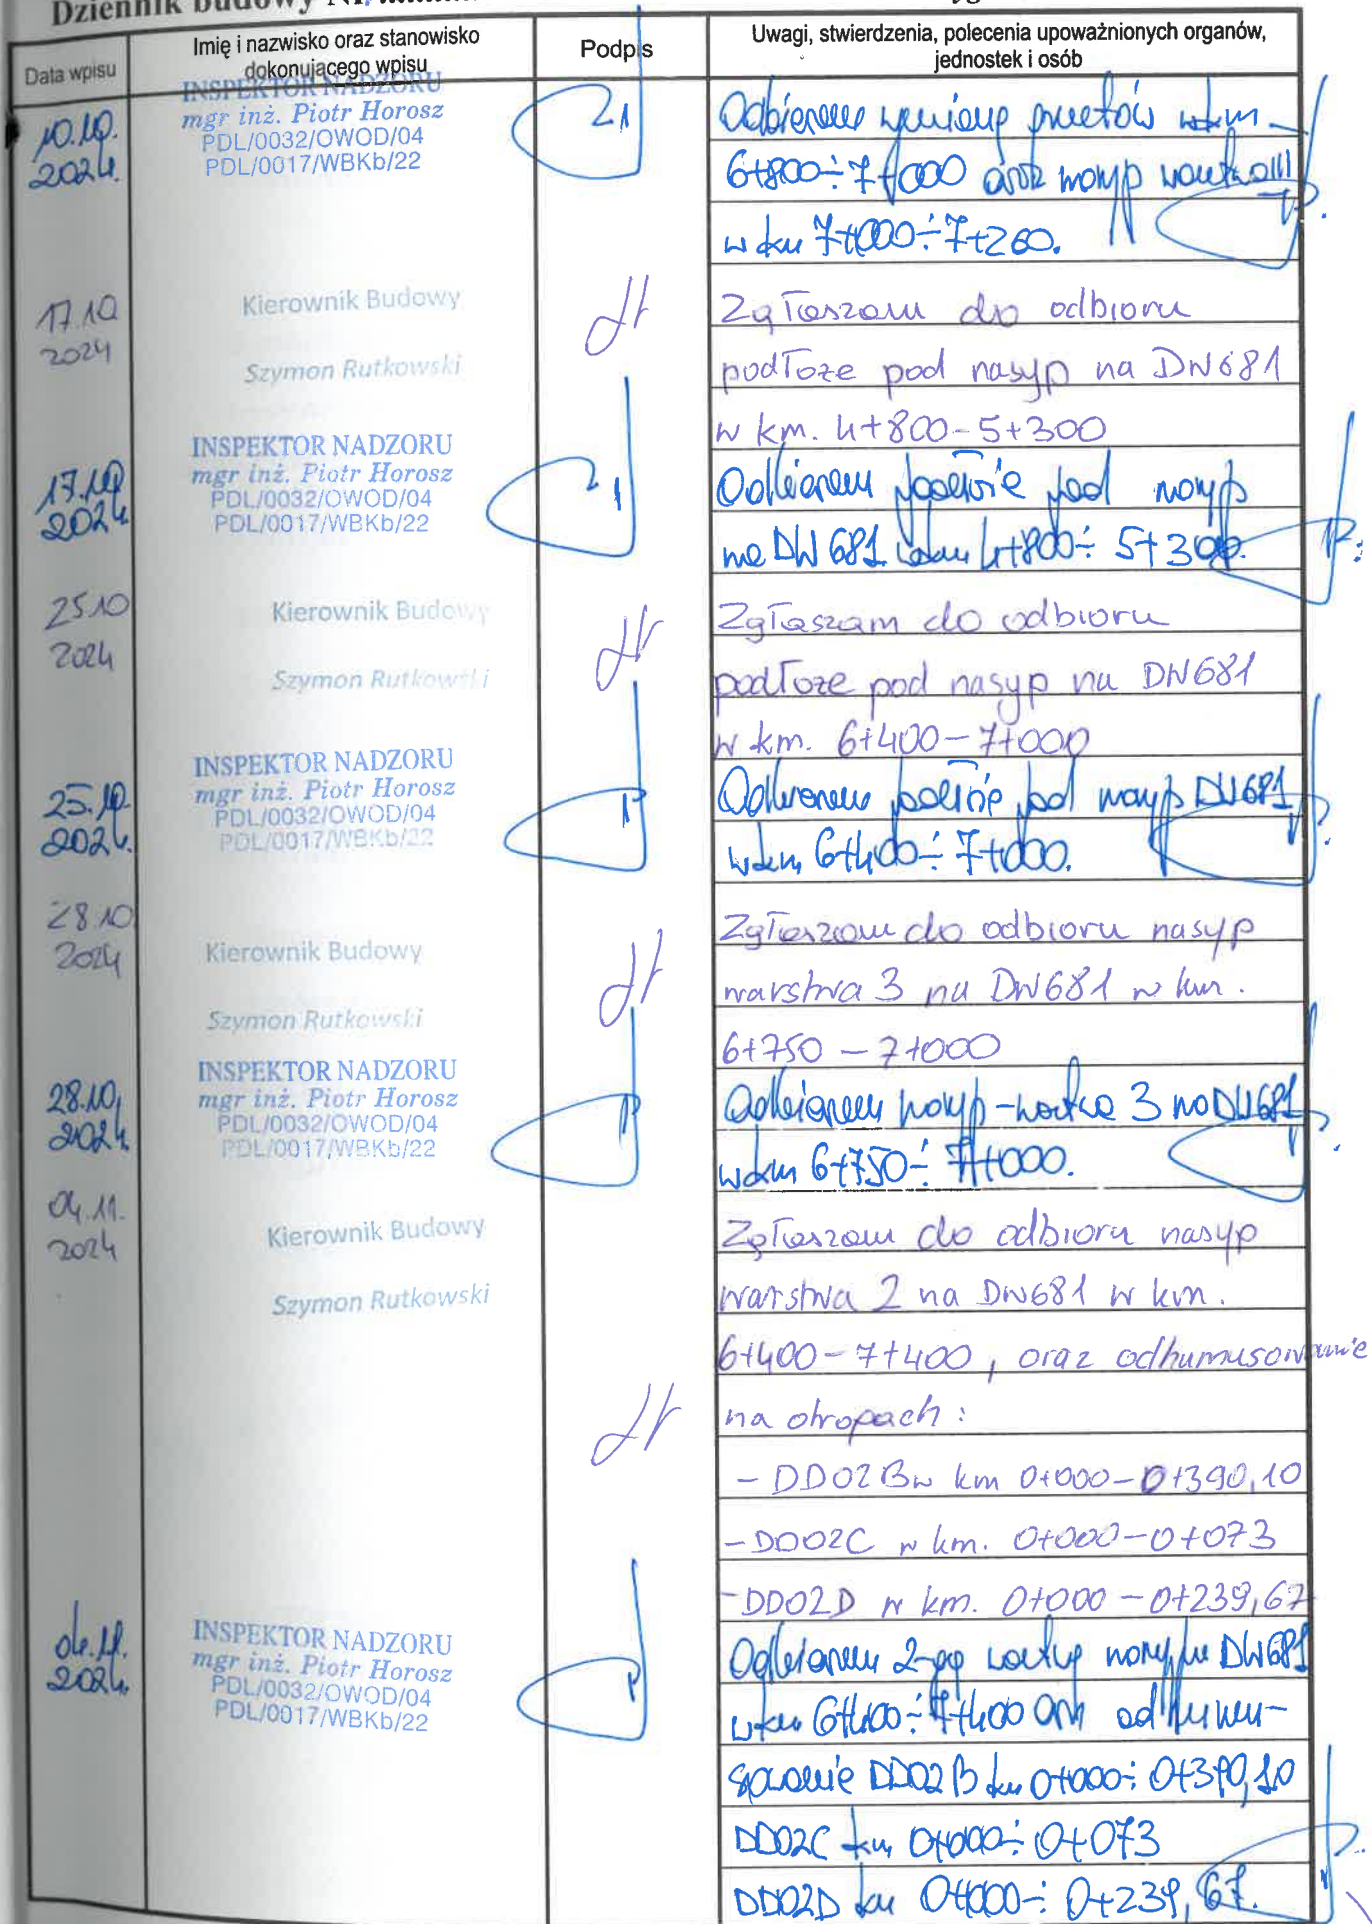 Dziennik budowy Nr
Data wpisu
Imię i nazwisko oraz stanowisko
dokonującego wpisu
Podpis
Uwagi, stwierdzenia, polecenia upoważnionych organów,
jednostek i osób
10.10.
2024.
INSPEKTOR NADZORU
mgr inż. Piotr Horosz
PDL/0032/OWOD/04
PDL/0017/WBKb/22
Odbieram wymianę gruntów w km
6+800÷7+000 oraz nasyp
w km 7+000÷7+260.
17.10
2024
Kierownik Budowy
Szymon Rutkowski
Zgłaszam do odbioru
podłoże pod nasyp na DW681
w km. 4+800-5+300
17.10
2024
INSPEKTOR NADZORU
mgr inż. Piotr Horosz
PDL/0032/OWOD/04
PDL/0017/WBKb/22
Odbieram podłoże pod nasyp
na DW 681 w km 4+800÷5+300.
25.10
2024
Kierownik Budowy
Szymon Rutkowski
Zgłaszam do odbioru
podłoże pod nasyp na DW681
w km. 6+400-7+000
25.10.
2024.
INSPEKTOR NADZORU
mgr inż. Piotr Horosz
PDL/0032/OWOD/04
PDL/0017/WBKb/22
Odbieram podłoże pod nasyp DW681
w km 6+400÷7+000.
28.10
2024
Kierownik Budowy
Szymon Rutkowski
Zgłaszam do odbioru nasyp
warstwa 3 na DW681 w km.
6+750-7+000
28.10.
2024.
INSPEKTOR NADZORU
mgr inż. Piotr Horosz
PDL/0032/OWOD/04
PDL/0017/WBKb/22
Odbieram nasyp-warstwa 3 na DW681
w km 6+750÷7+000.
04.11.
2024
Kierownik Budowy
Szymon Rutkowski
Zgłaszam do odbioru nasyp
warstwa 2 na DW681 w km.
6+400-7+400, oraz odhumusowanie
na dropach:
- DD02B w km 0+000-0+390,10
-DD02C w km. 0+000-0+073
-DD02D w km. 0+000-0+239,67
04.11.
2024.
INSPEKTOR NADZORU
mgr inż. Piotr Horosz
PDL/0032/OWOD/04
PDL/0017/WBKb/22
Odbieram 2-gą warstwę nasypu DW681
w km 6+400÷7+400 oraz odhumu-
sowanie DD02B km 0+000÷0+390,10
DD02C km 0+000÷0+073
DD02D km 0+000÷0+239,67.